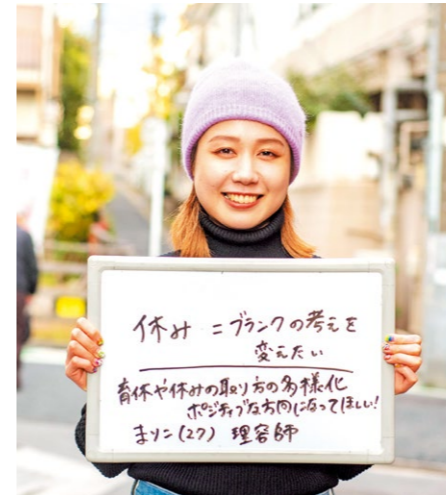 休み = ブランクの考えを
変えたい
育休や休みの取り方の多様化
ポジティブな方向になってほしい!
まりこ(27) 理容師